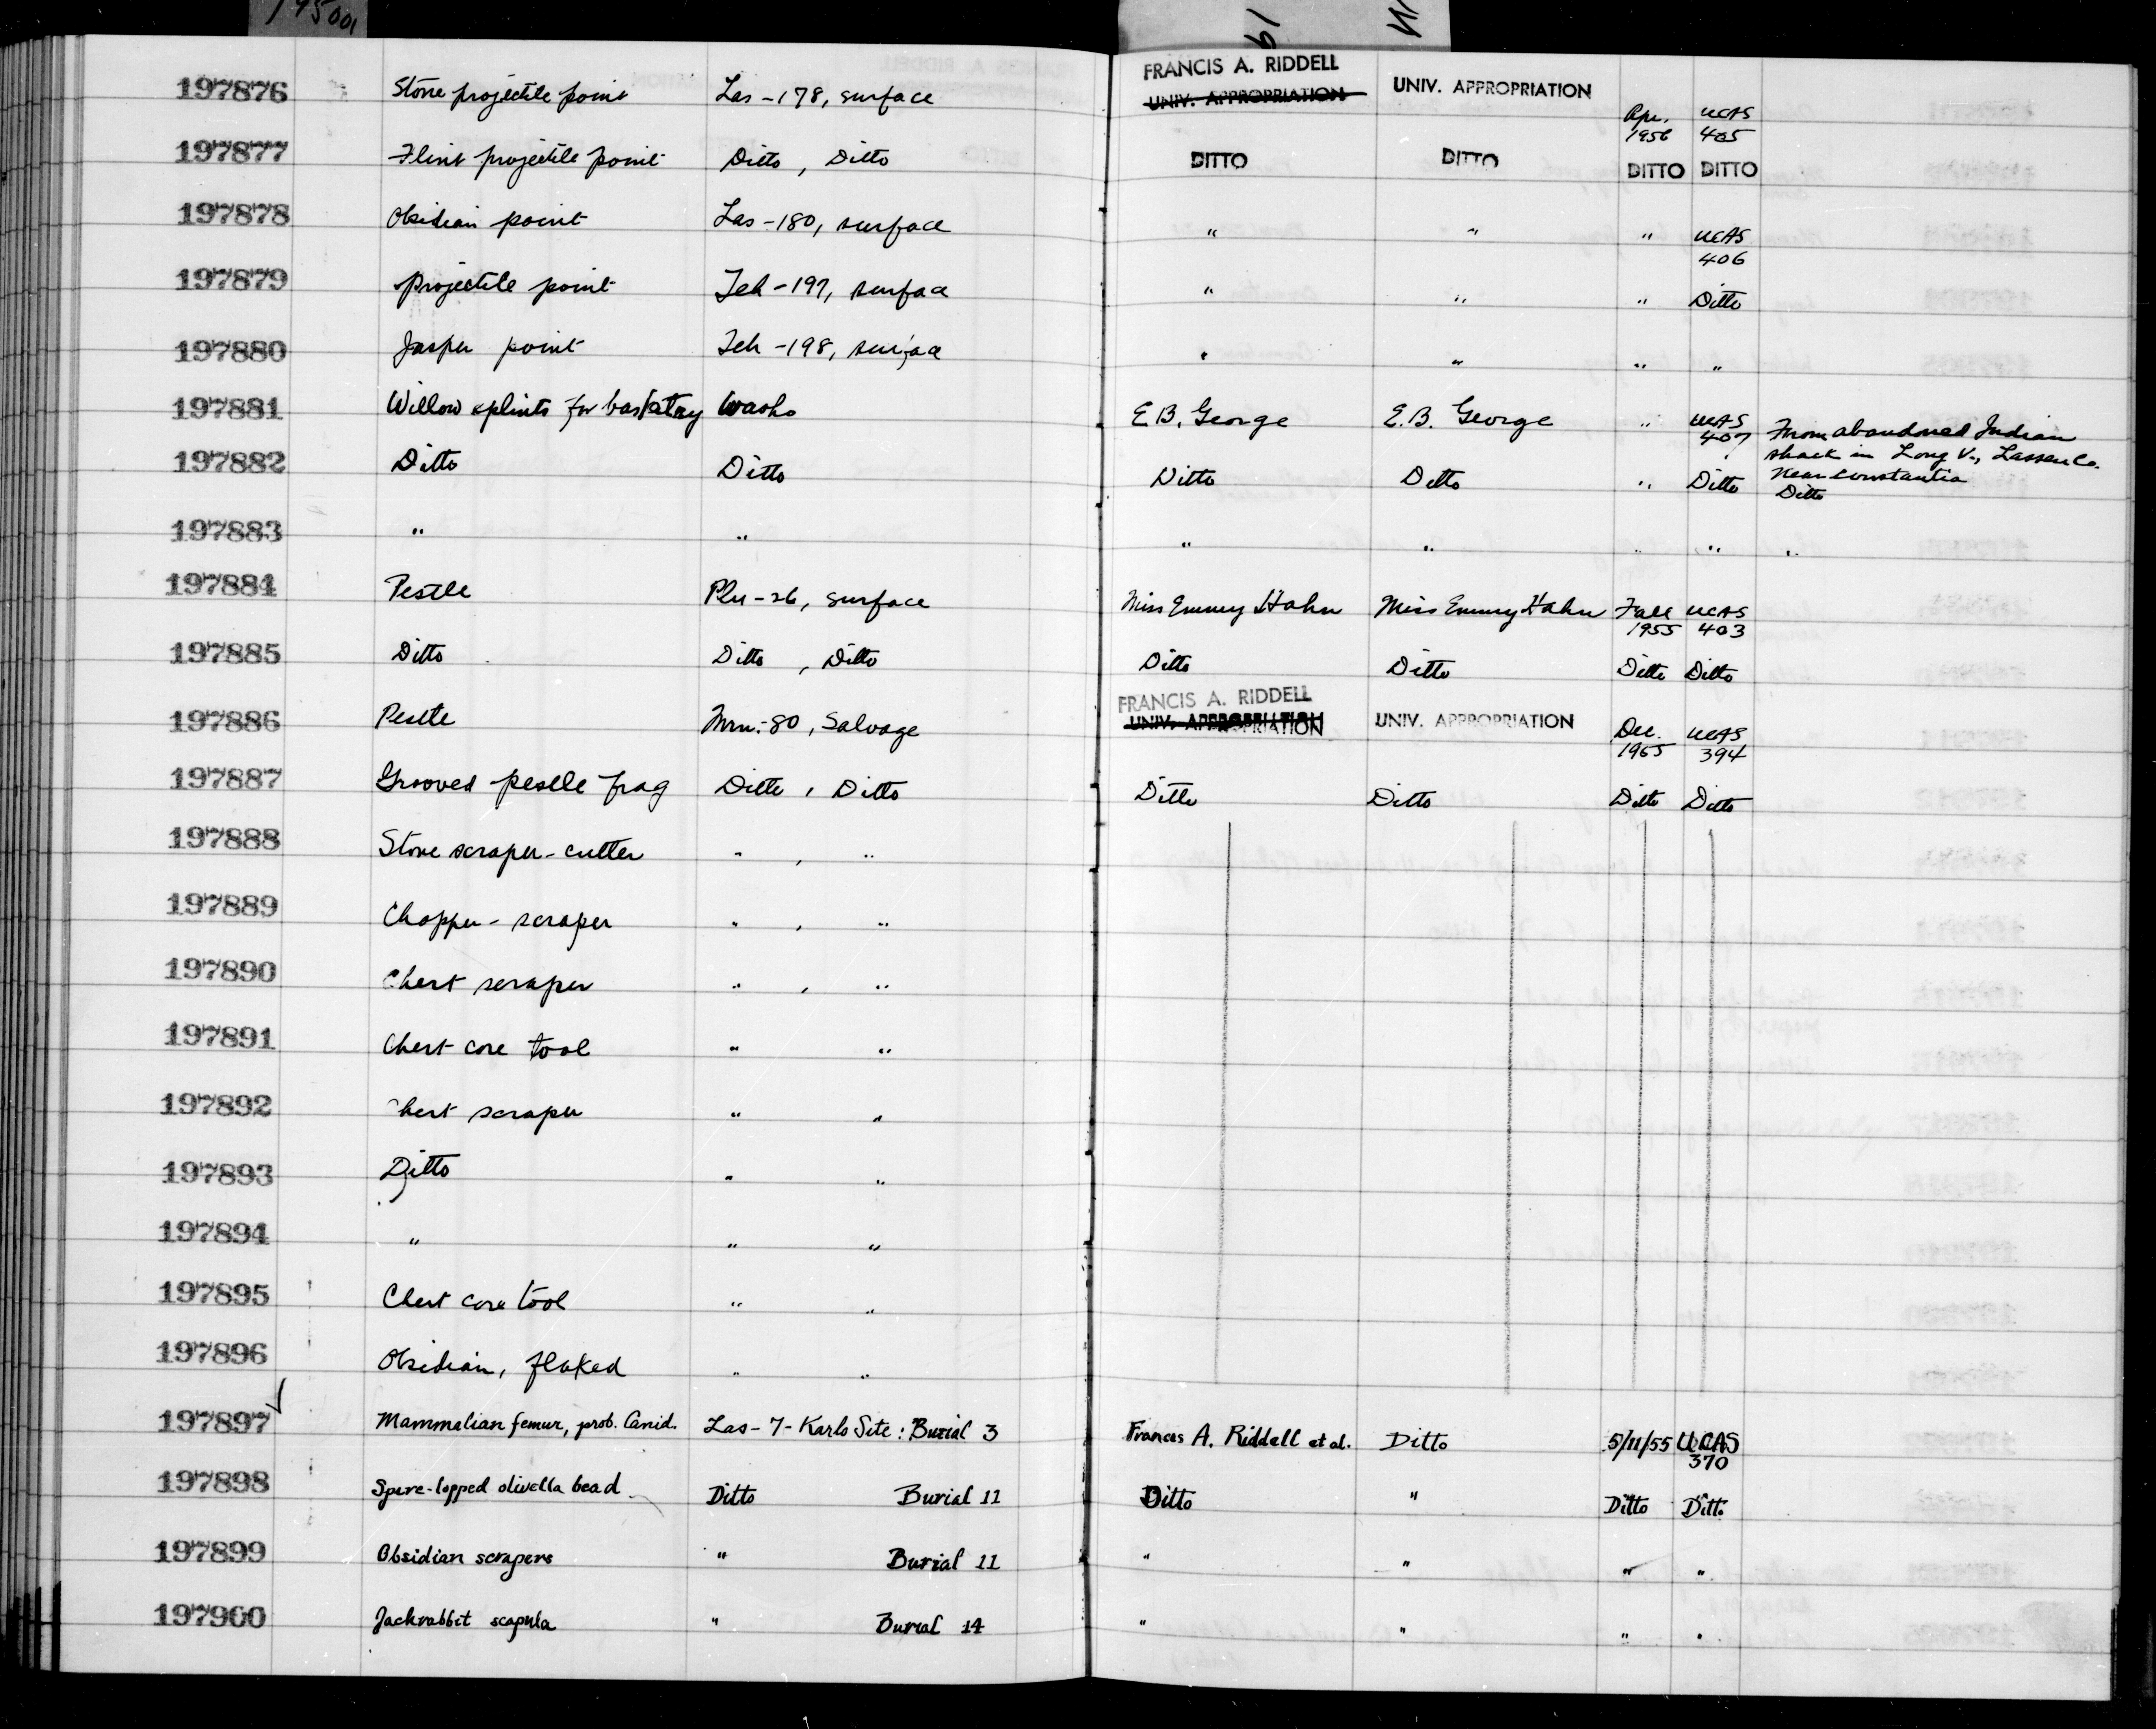 195001
197876 Stone projectile point Las-178, surface FRANCIS A. RIDDELL UNIV. APPROPRIATION UNIV. APPROPRIATION Apr. 1956 UCAS 405
197877 Flint projectile point Ditto, Ditto DITTO DITTO DITTO DITTO
197878 Obsidian point Las-180, surface " " " UCAS 406
197879 projectile point Teh-197, surface " " " Ditto
197880 Jasper point Teh-198, surface " " " "
197881 Willow splints for basketry Washo E.B. George E.B. George " UCAS 407 From abandoned Indian
shack in Long V., Lassen Co.
near Constantia
197882 Ditto Ditto Ditto Ditto " Ditto Ditto
197883 " " " " " " "
197884 Pestle Plu-26, surface Miss Emmy Hahn Miss Emmy Hahn Fall 1955 UCAS 403
197885 Ditto Ditto, Ditto Ditto Ditto Ditto Ditto
197886 Pestle Mrn-80, Salvage FRANCIS A. RIDDELL UNIV. APPROPRIATION UNIV. APPROPRIATION Dec. 1955 UCAS 394
197887 Grooved pestle frag Ditto, Ditto Ditto Ditto Ditto Ditto
197888 Stone scraper-cutter " , "
197889 Chopper-scraper " , "
197890 Chert scraper " , "
197891 Chert core tool " "
197892 Chert scraper " "
197893 Ditto " "
197894 " " "
197895 Chert core tool " "
197896 Obsidian, flaked " "
197897 ✓ Mammalian femur, prob. Canid. Las-7-Karlo Site: Burial 3 Francis A. Riddell et al. Ditto 5/11/55 UCAS 370
197898 Spire-lopped olivella bead Ditto Burial 11 Ditto " Ditto Ditto
197899 Obsidian scrapers " Burial 11 " " " "
197900 Jackrabbit scapula " Burial 14 " " " "